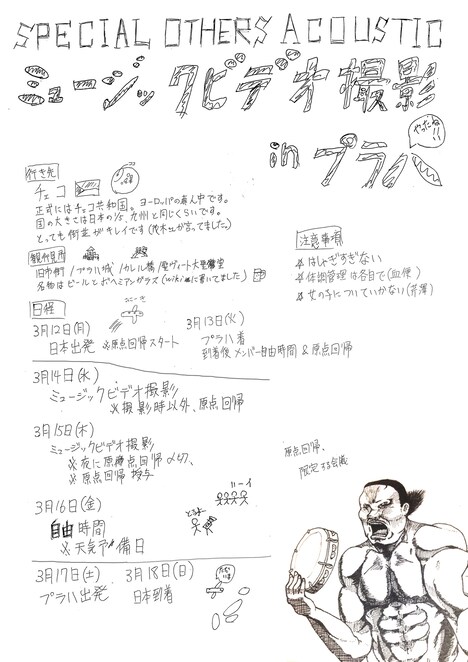 SPECIAL OTHERS ACOUSTIC
ミュージックビデオ撮影
in プラハ
やったね!!
行き先
チェコ
正式にはチェコ共和国。ヨーロッパの真ん中です。
国の大きさは日本の1/5、九州と同じくらいです。
とっても街並がキレイです
観光名所
旧市街/プラハ城/カレル橋/聖ヴィート大聖堂
名物はビールとボヘミアングラス(wikiに書いてました)
注意事項
※はしゃぎすぎない
※体調管理は各自で(血便)
※女の子についていかない(芹澤)
日程
3月12日(月)
日本出発 ※原点回帰スタート
3月13日(火)
プラハ着
到着後メンバー自由時間&原点回帰
3月14日(水)
ミュージックビデオ撮影
※撮影時以外、原点回帰
3月15日(木)
ミュージックビデオ撮影
※夜に原点回帰〆切、
※原点回帰授与
3月16日(金)
自由時間
※天気予備日
3月17日(土)
プラハ出発
3月18日(日)
日本到着
原点回帰、
限定する会議